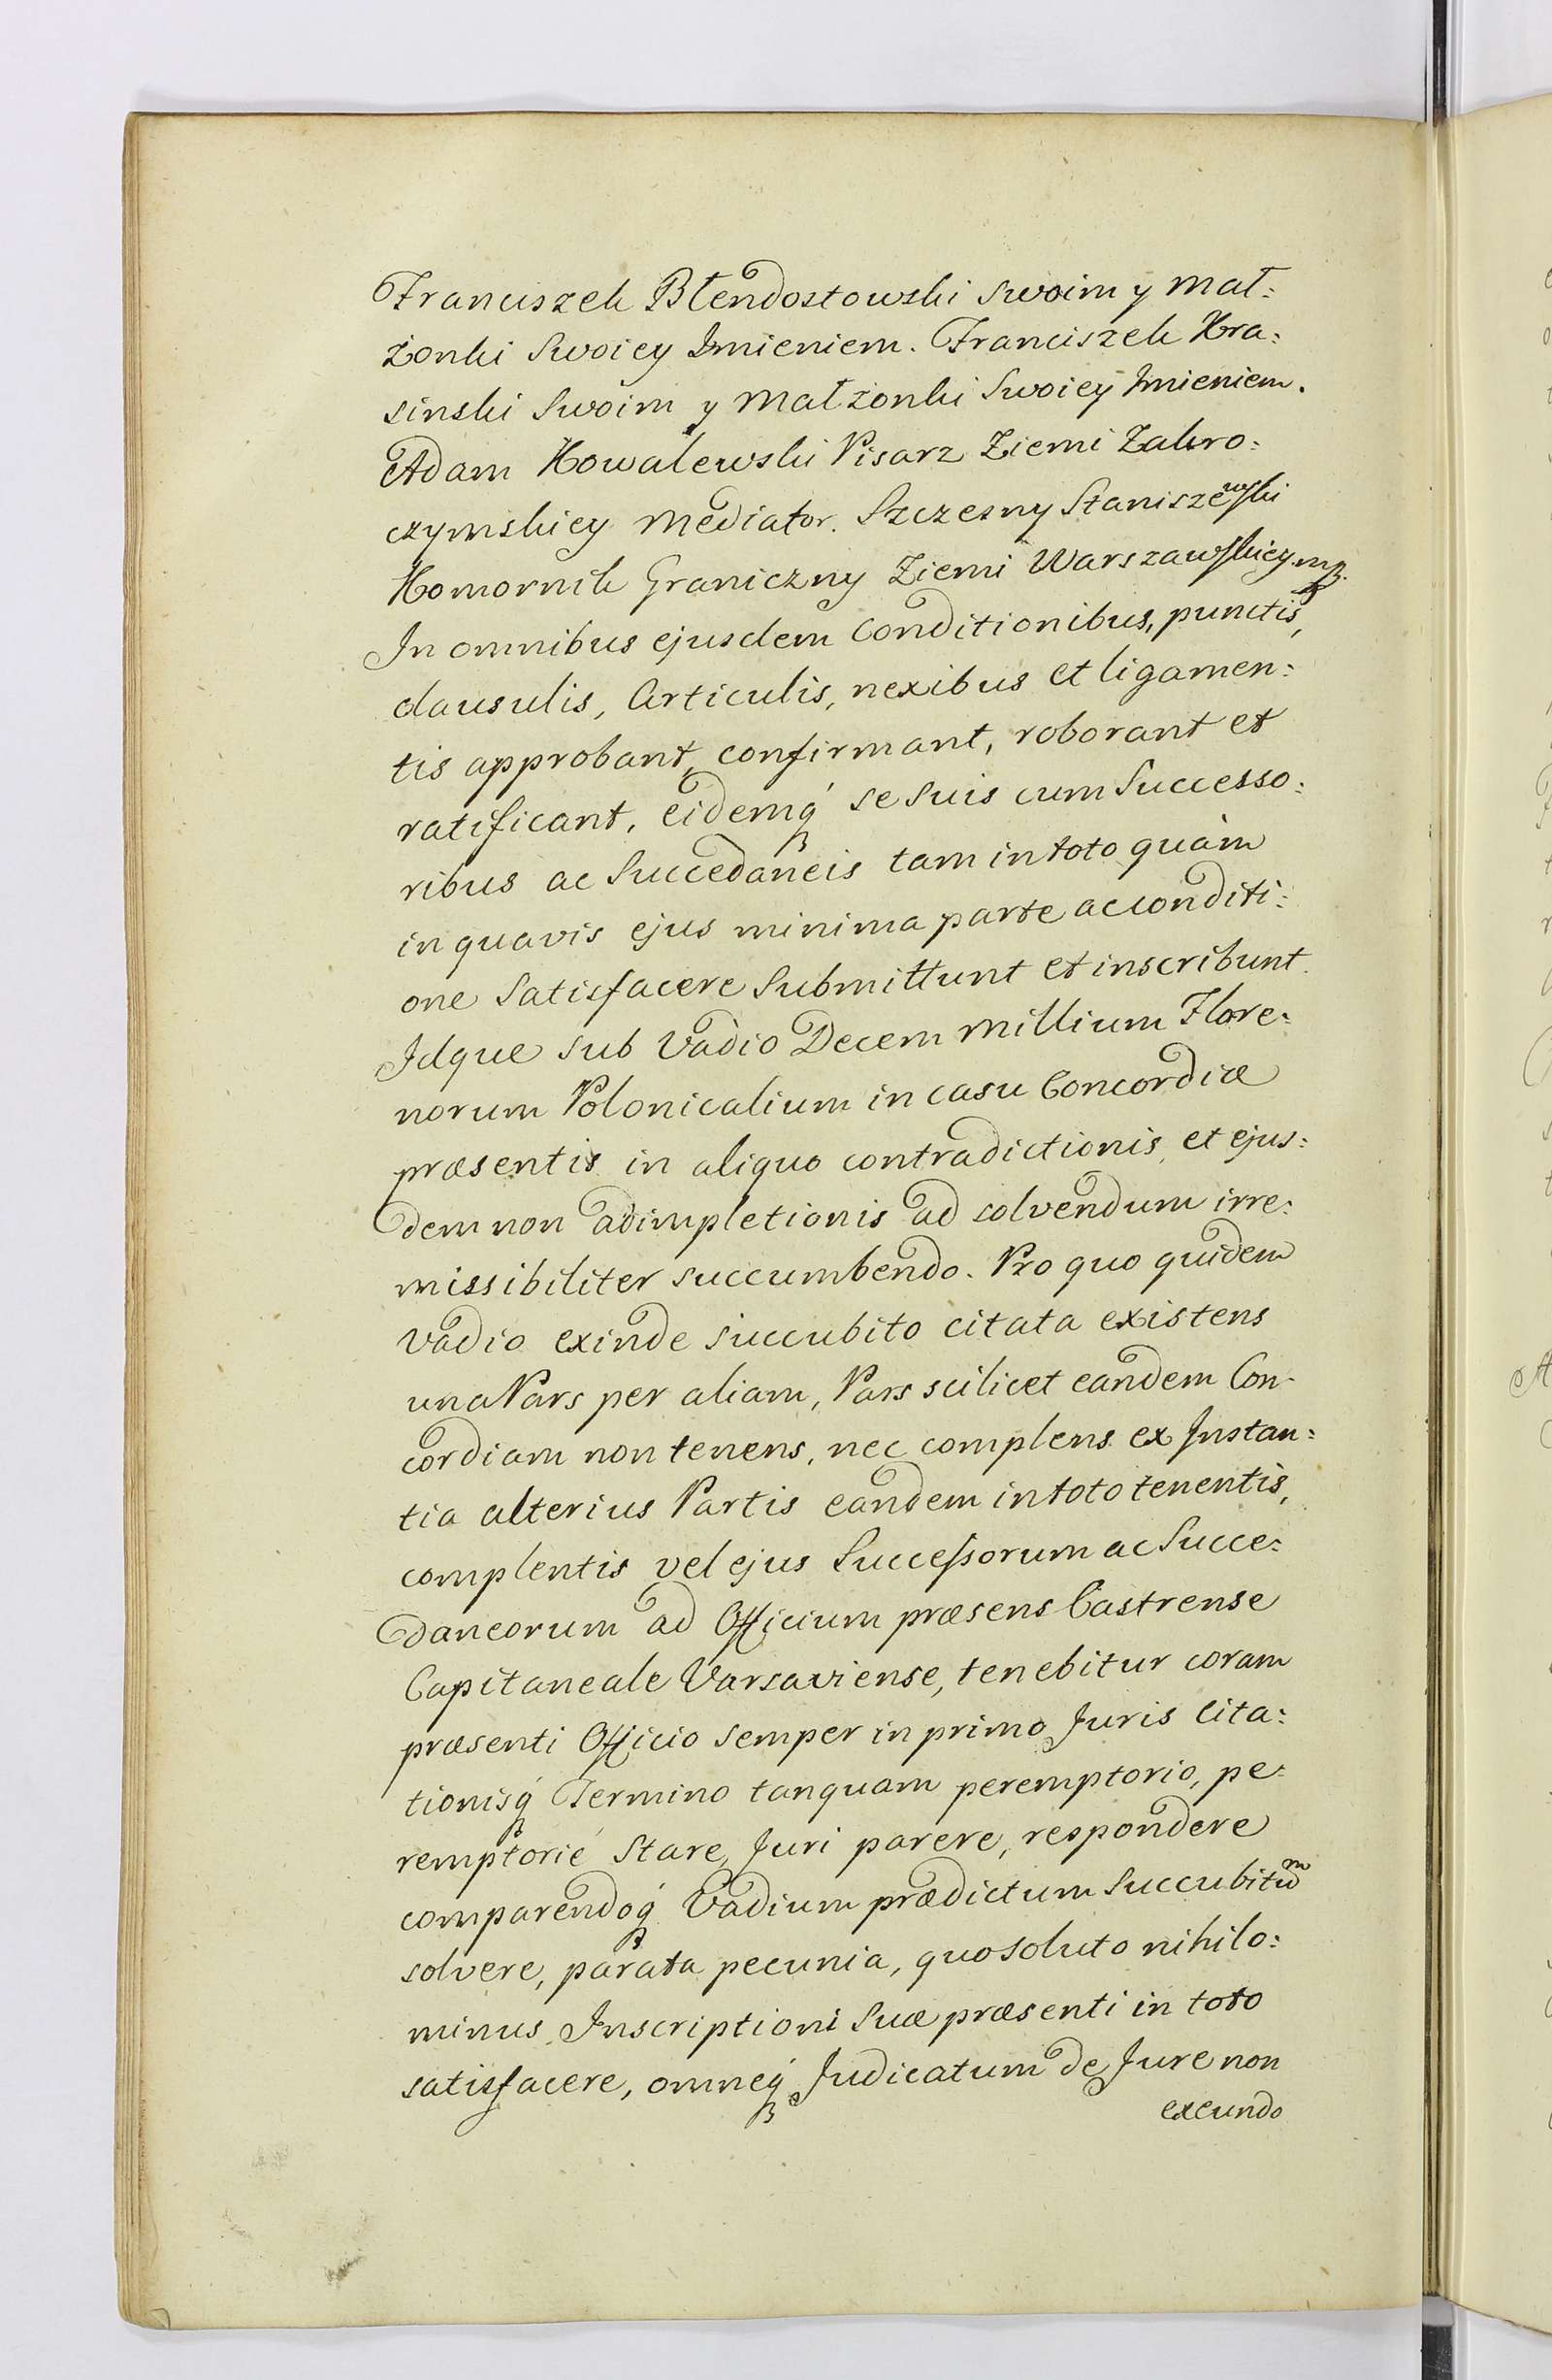 Franciszek Błendostowski swoim y mał:
żonki Swoiey Imieniem. Franciszek Kra:
sinski Swoim y małżonki Swoiey Imieniem.
Adam Kowalewski Pisarz Ziemi Zakro:
czymskiey Mediator. Szczesny Staniszewski
Komornik Graniczny Ziemi Warszawskiey. mp.
In omnibus ejusdem Conditionibus, punctis,
clausulis, Articulis, nexibus et ligamen:
tis approbant, confirmant, roborant et
ratificant, eidemq́ se suis cum Successo:
ribus ac Succedaneis tam in toto quàm
in quavis ejus minima parte ac conditi:
one Satisfacere Submittunt et inscribunt.
Idque sub Vadio Decem Millium Flore:
norum Polonicalium in casu Concordiæ
præsentis in aliquo contradictionis, et ejus:
dem non adimpletionis ad solvendum irre:
missibiliter succumbendo. Pro quo quidem
Vadio exinde succubito citata existens
una Pars per aliam, Pars scilicet eandem Con:
cordiam non tenens, nec complens ex Instan:
tia alterius Partis eandem in toto tenentis,
complentis vel ejus Successorum ac Succe:
daneorum ad Officium præsens Castrense
Capitaneale Varsaviense, tenebitur coram
præsenti Officio semper in primo Juris Cita:
tionisq́ Termino tanquam peremptorio, pe:
remptoriè stare, Juri parere, respondere
comparendoq́ Vadium prædictum succubitum
solvere, parata pecunia, quo soluto nihilo:
minus Inscriptioni Suæ præsenti in toto
satisfacere, omneq́ Judicatum de Jure non
exeundo